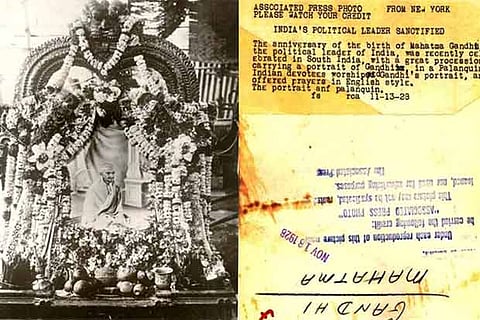 ASSOCIATED PRESS PHOTO FROM NEW YORK
PLEASE WATCH YOUR CREDIT
INDIA'S POLITICAL LEADER SANCTIFIED
The anniversary of the birth of Mahatma Gandhi
the political leader of India, was recently cel
ebrated in South India, with a great procession
carrying a portrait of Gandhi in, in a Palanquin
Indian devotees worship Gandhi's portrait, an
offered prayers in English style.
The portrait anf palanquin.
fs rca 11-13-28
The Associated Press
leased, nor used for advertising purposes.
This picture may not be syndicated, rented,
"ASSOCIATED PRESS PHOTO"
be carried the following credit:
Under each reproduction of this picture must
NOV 1 1928
MAHATMA
GANDHI